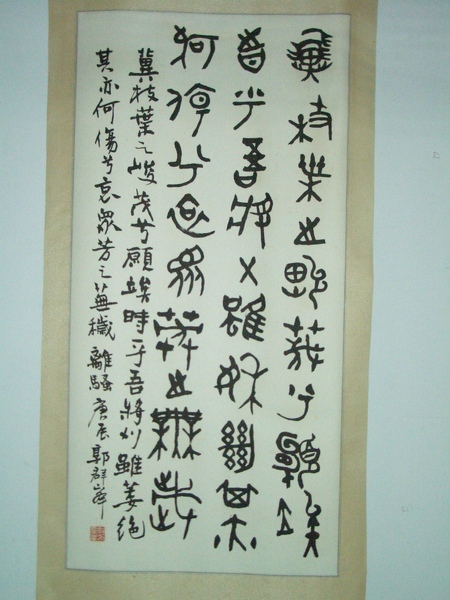 冀枝葉之峻茂兮願竢
時乎吾將刈雖萎絶其亦
何傷兮哀眾芳之蕪穢
冀枝葉之峻茂兮願竢時乎吾將刈雖萎絶
其亦何傷兮哀眾芳之蕪穢 離騷 庚辰 郭群峯